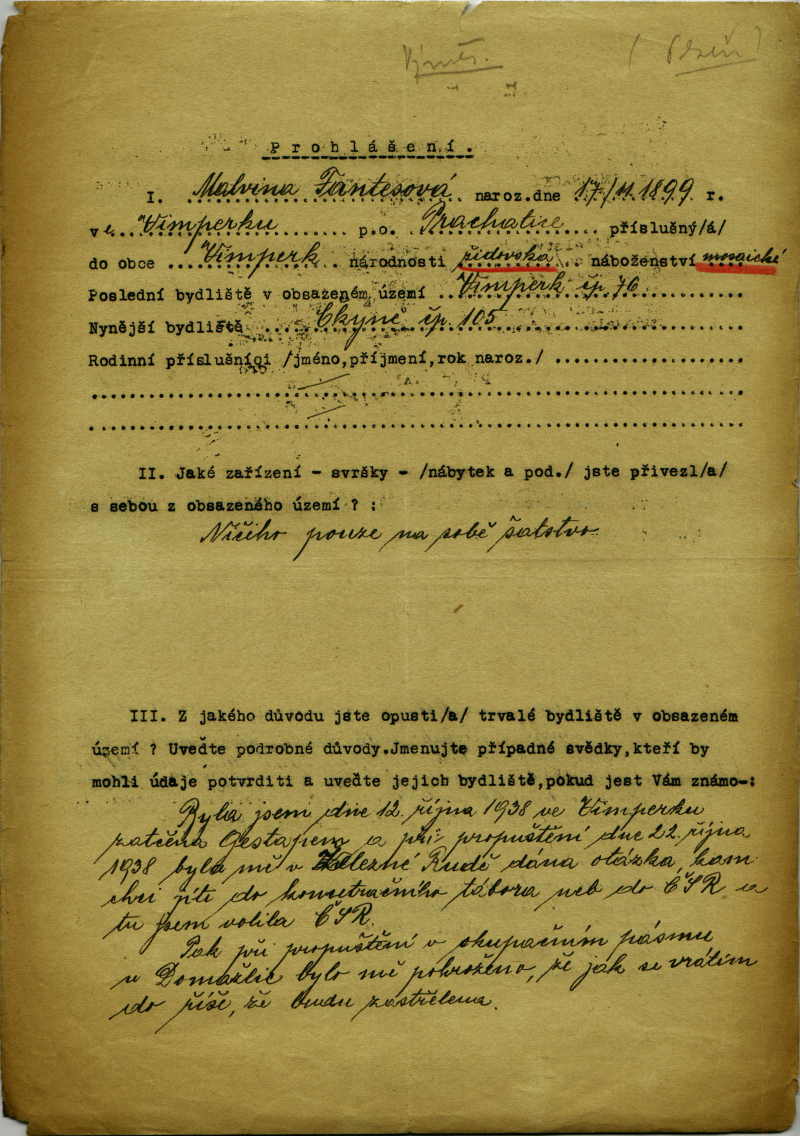 Výměr.
( Plzeň )
Prohlášení.
I. Malvina Fantesová naroz.dne 17/11.1899 r.
v e Vimperku p.o. Prachatice příslušný/á/
do obce Vimperk národnosti židovská náboženství mosaické
Poslední bydliště v obsazeném území Vimperk čp 76
Nynější bydliště Čkyně čp. 105
Rodinní příslušníci /jméno,příjmení,rok naroz./
II. Jaké zařízení - svršky - /nábytek a pod./ jste přivezl/a/
s sebou z obsazeného území ? :
Ničeho pouze na sobě šatstvo.
III. Z jakého důvodu jste opusti/a/ trvalé bydliště v obsazeném
území ? Uveďte podrobné důvody.Jmenujte případné svědky,kteří by
mohli údaje potvrditi a uveďte jejich bydliště,pokud jest Vám známo-:
Byla jsem dne 12. října 1938 ve Vimperku
zatčena Gestapem a při propuštění dne 22. října
1938 byla mě v Železné Rudě dána otázka, kam
chci jíti do koncetračního tábora neb do ČSR a
tu jsem volila ČSR.
Pak při propuštění v okupačním pásmu
u Domažlic bylo mě pohroženo, že jak se vrátím
do říše, že budu zastřelena.